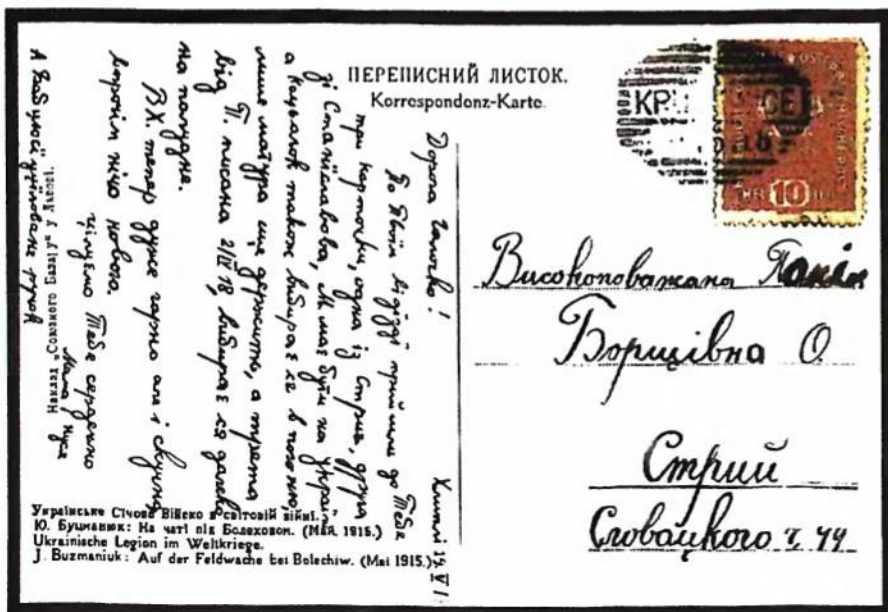 ПЕРЕПИСНИЙ ЛИСТОК.
Korrespondenz-Karte.
KR 10
Високоповажана
Борщівна О.
Стрий
Словацкого ч. 44
Дорога Галочко!
По Твоїм відїзді прийшли до Тебе
три карточки, одна із Стрия, друга
зі Станиславова, М. має бути на Україні
а також вибирає ся в
лише ще держить, а третя
від П. писана 2/IV 18, вибирає ся далеко
на
В Х. тепер дуже гарно але і скучно
впрочім нічо нового.
цілуємо Тебе сердечно
Мама
А
Наклад „Союзного Базару" у Львові.
Українське Січове Військо в світовій війні.
Ю. Буцманюк: На чаті під Болеховом. (Май 1915.)
Ukrainische Legion im Weltkriege.
J. Buzmaniuk: Auf der Feldwache bei Bolechiw. (Mai 1915.)